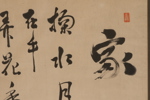 家
掬水月
在手
弄花香